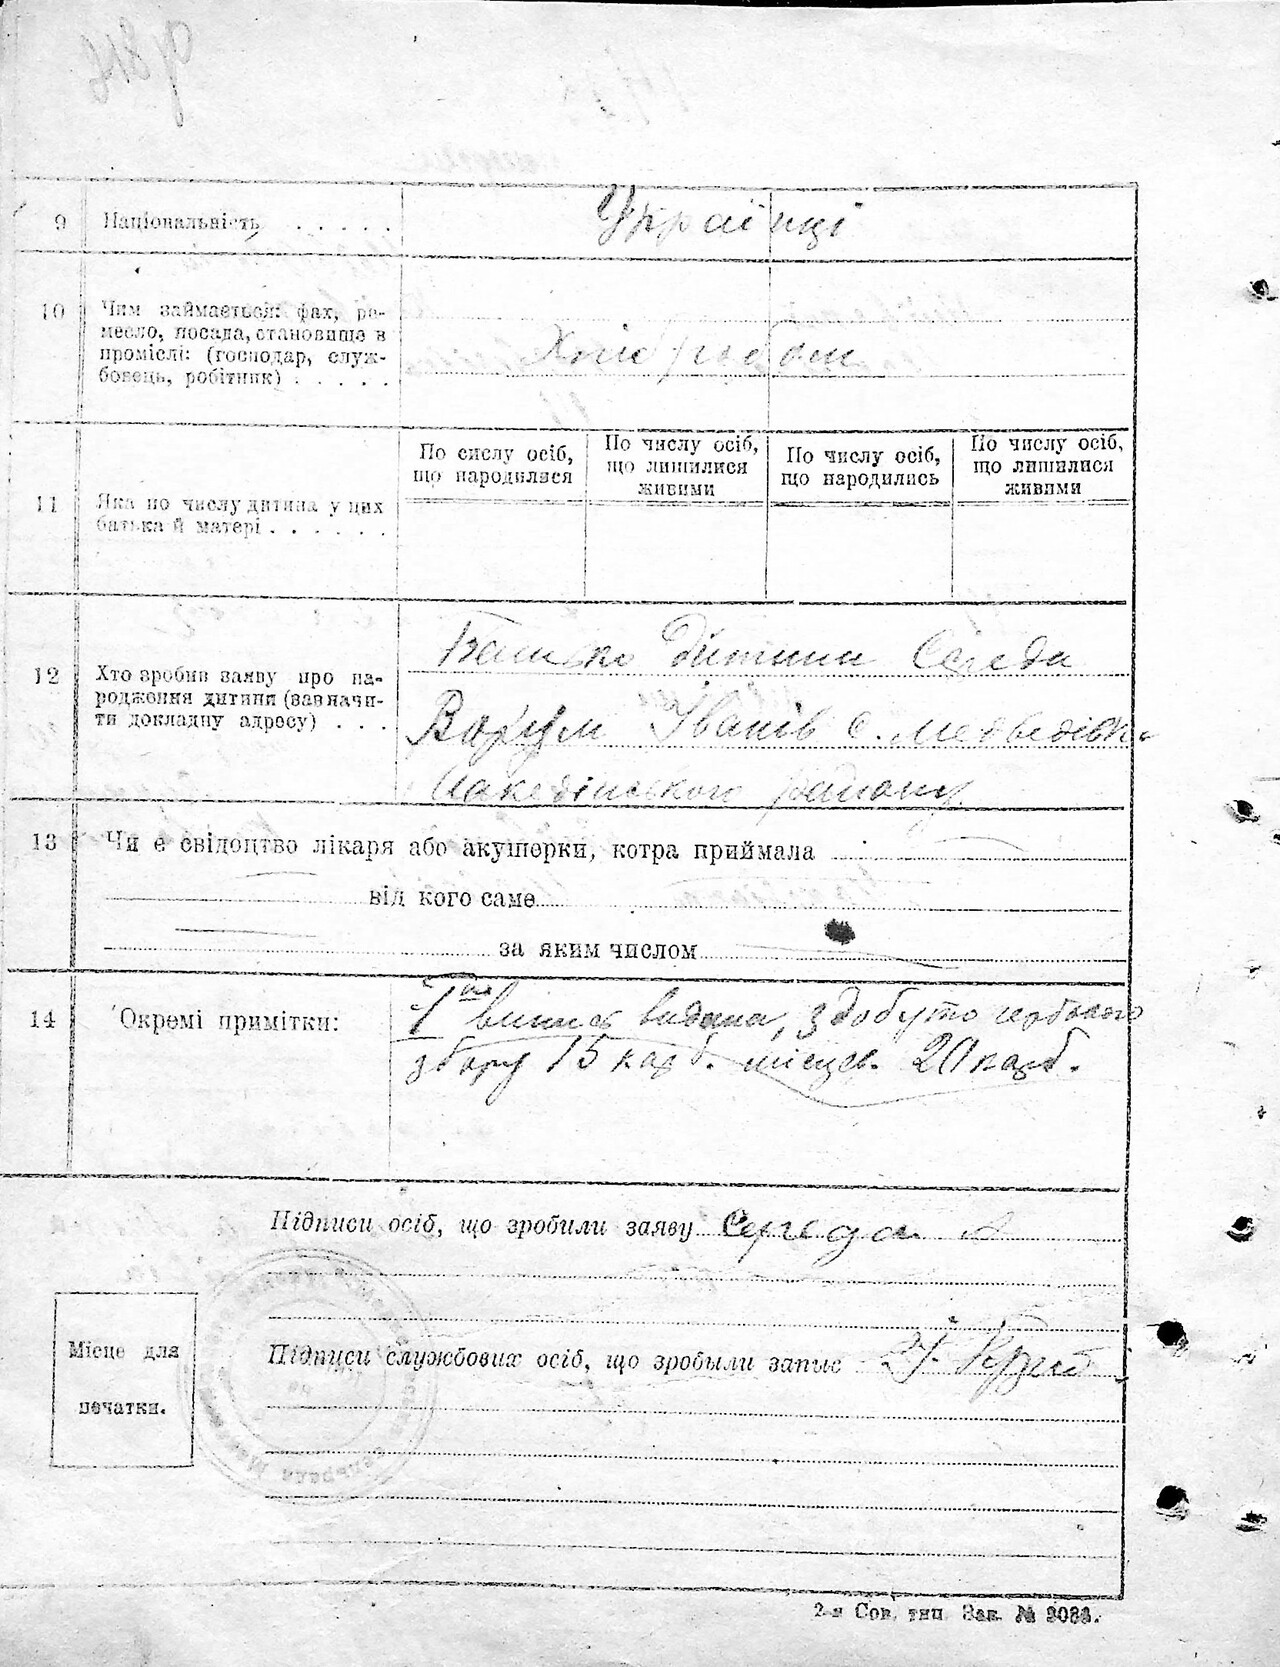 9 Національність . . . . . Українці
10 Чим займається: фах, ре-
месло, посада, становище в
промислі: (господар, служ-
бовець, робітник) . . . . . Хлібороб
11 Яка по числу дитина у цих
батька й матері . . . . . .
По сислу осіб,
що народилися
По числу осіб,
що лишилися
живими
По числу осіб,
що народились
По числу осіб,
що лишилися
живими
12 Хто зробив заяву про на-
родження дитини (зазначи-
ти докладну адресу) . . .
Батько дитини Середа
Іванів с. Медведівки
району
13 Чи є свідоцтво лікаря або акушерки, котра приймала
від кого саме
за яким числом
14 Окремі примітки:
випись видана, здобуто гербового
збору 15 карб. місцев. 20 карб.
Підписи осіб, що зробили заяву Середа
Місце для
печатки.
Підписи службових осіб, що зробыли запыс
2-я Сов. тип. Зак. №